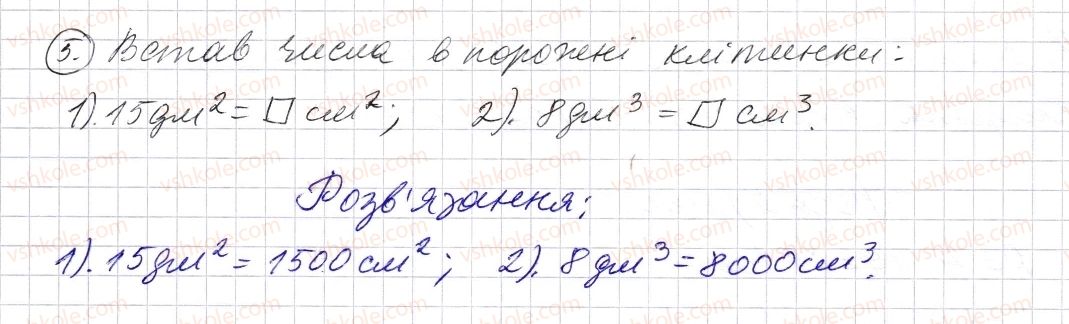 5. Встав числа в порожні клітинки:
1). 15дм² = □ см²; 2). 8дм³ = □ см³.
Розв'язання:
1). 15дм² = 1500см²; 2). 8дм³ = 8000см³.